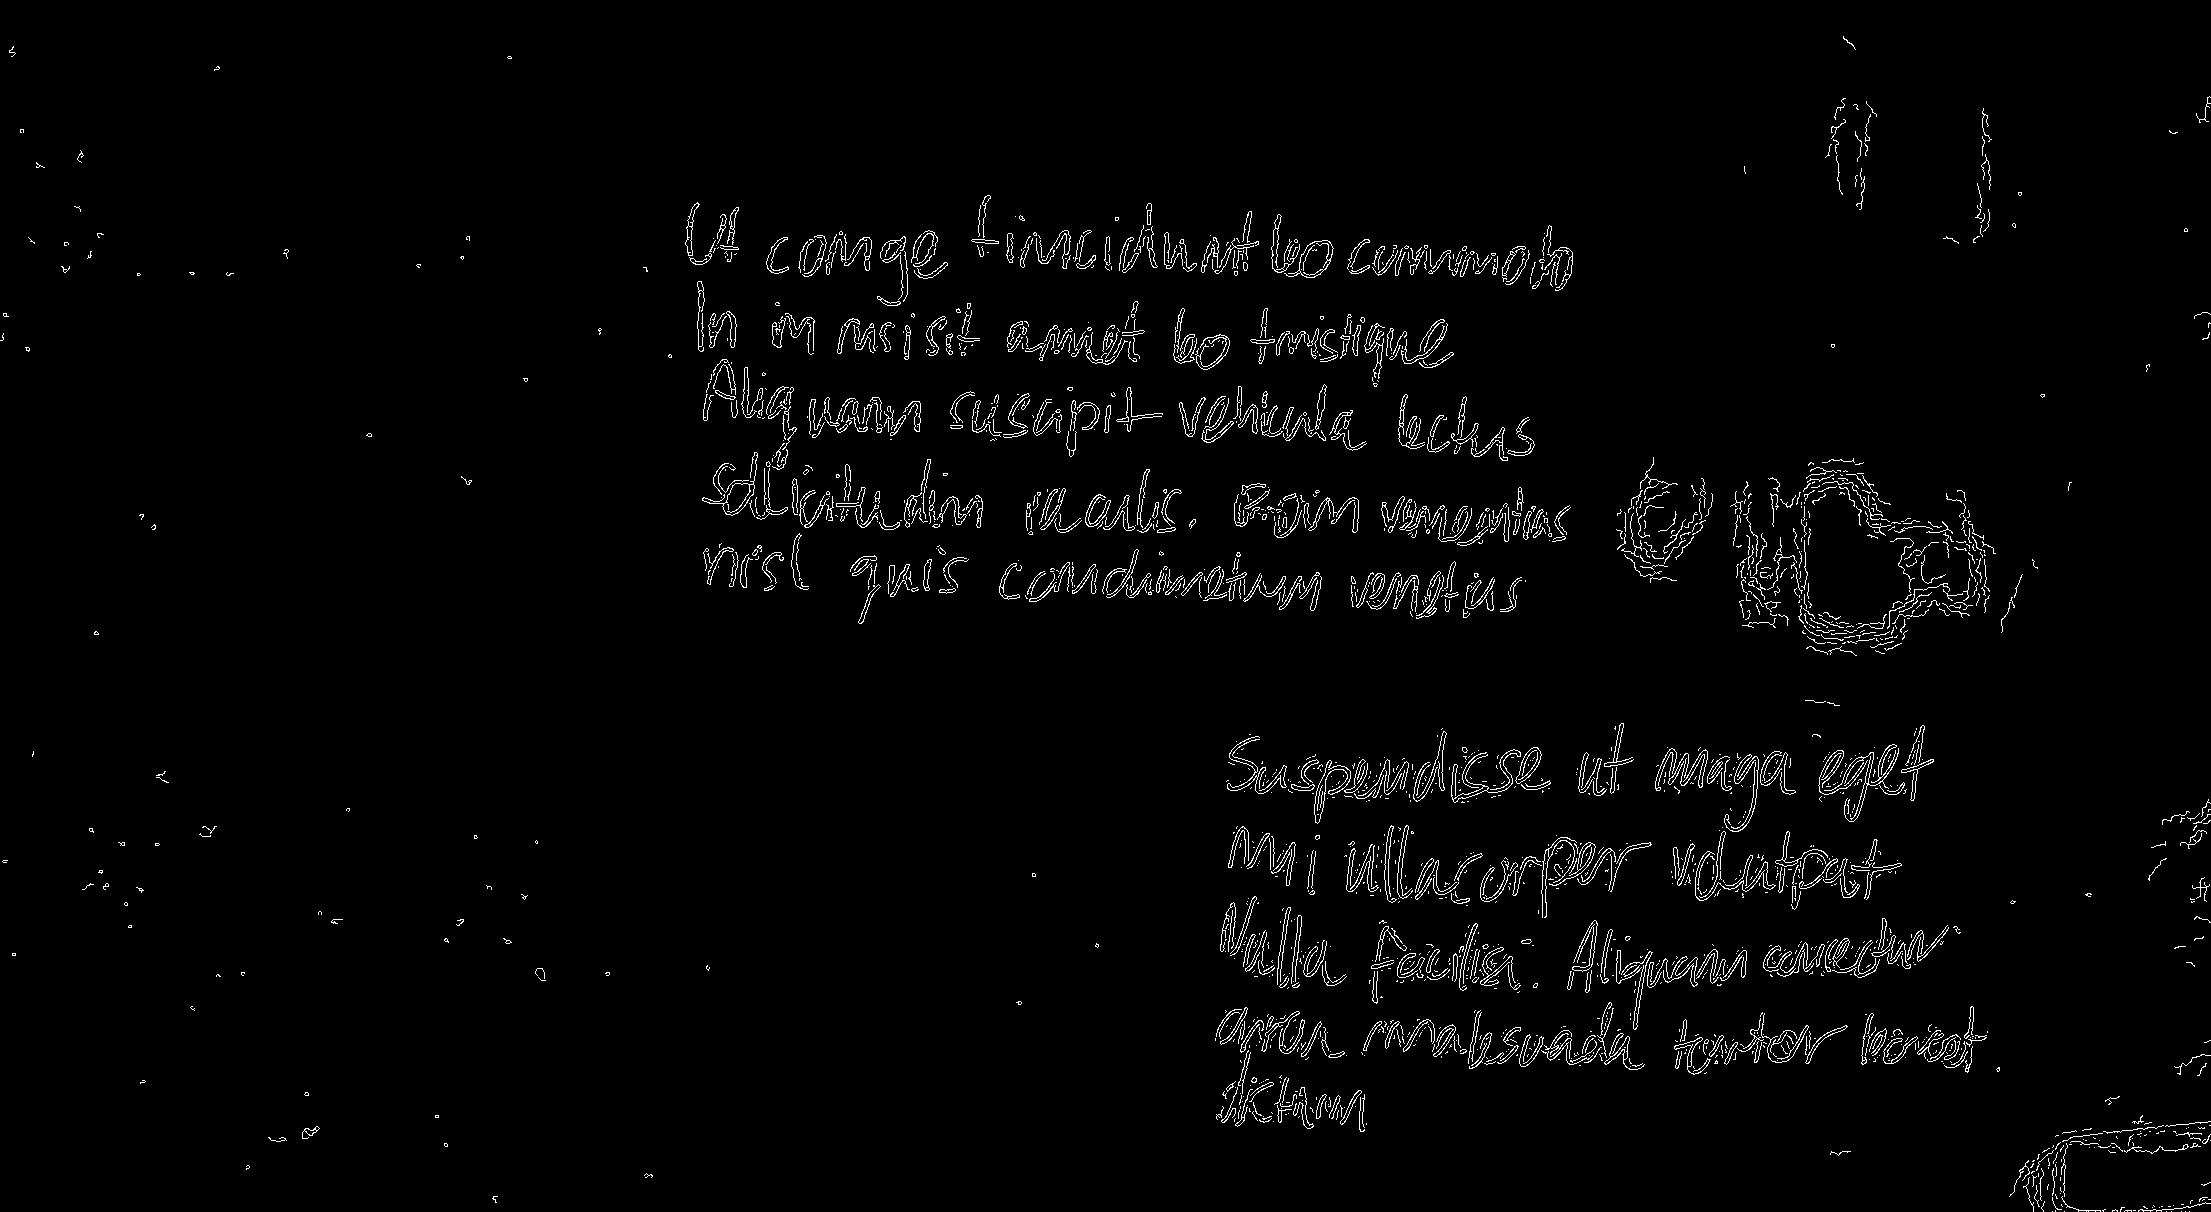 Ut conge tincidunt leo commodo
In in nisi sit amet leo tristique
Aliquam suscipit vehicula lectus
sollicitudin iaculis. Proin
nisl quis condimetum
Suspendisse ut maga eget
mi ullacorper volutpat
Nulla facilisi. Aliquam
malesuada tortor laoreet
dictum